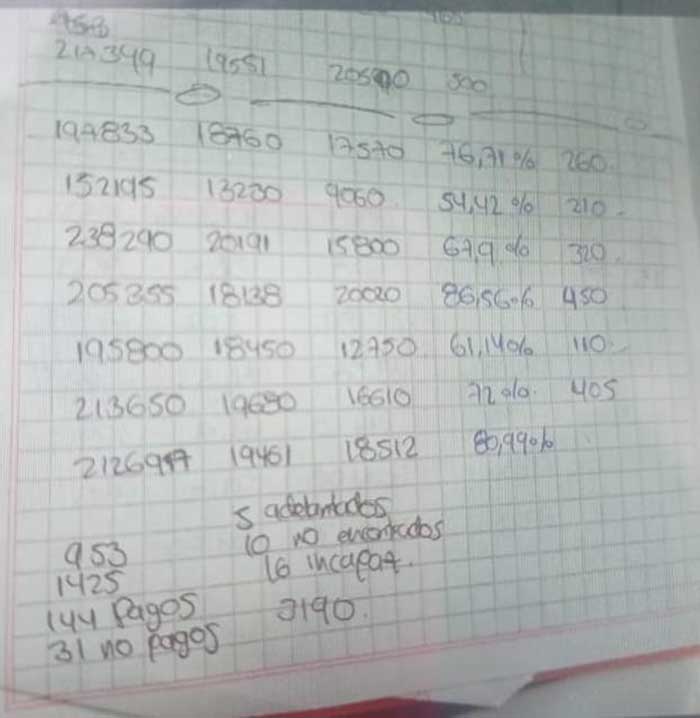 958
214349 19551 20590 500
197833 18760 17570 76,71% 260.
152195 13230 9060. 54,42% 210-
238290 20191 15800 67,9% 320.
205355 18138 20020 86,56% 450
195800 18450 12750 61,14% 110.
213650 19680 16610 72%. 405
212697 19461 18512 80,99%
5 adelantados
953 10 no encontrados
1425 16 incapaz.
144 Pagos 3190.
31 no pagos